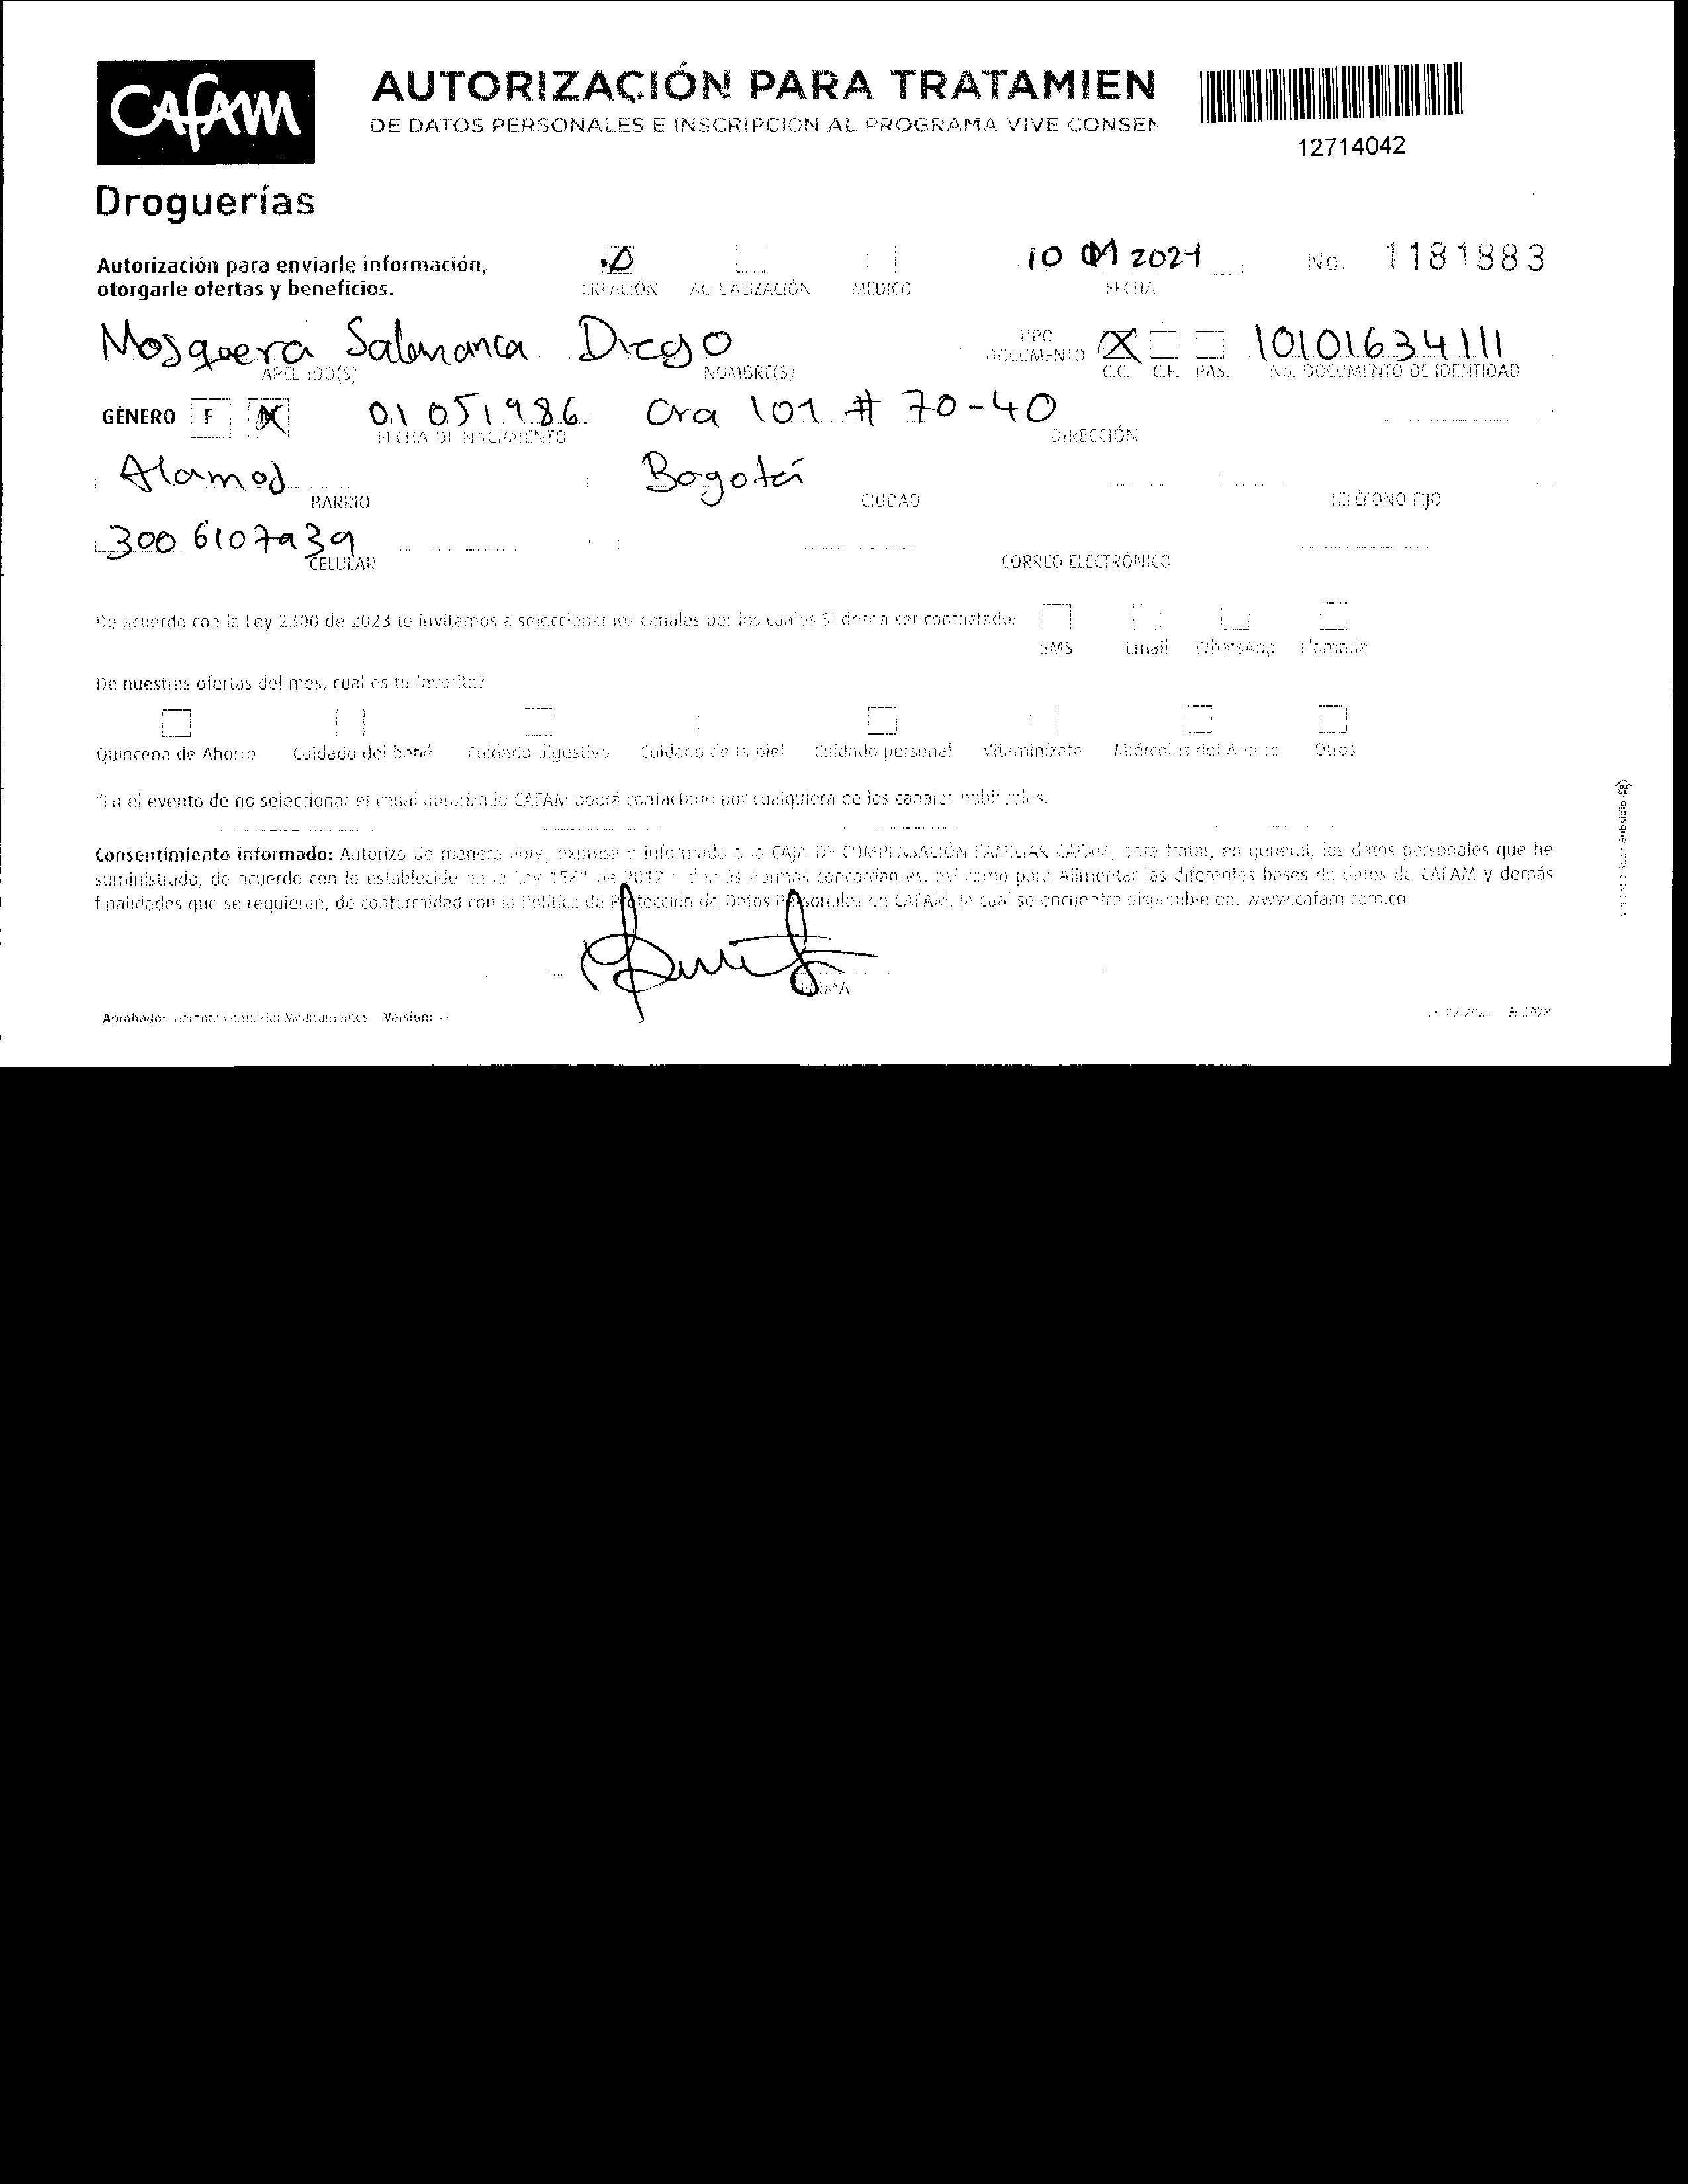 CAFAM
AUTORIZACIÓN PARA TRATAMIEN
DE DATOS PERSONALES E INSCRIPCIÓN AL PROGRAMA VIVE CONSEN
12714042
Droguerías
Autorización para enviarle información,
otorgarle ofertas y beneficios.
CREACIÓN ACTUALIZACIÓN MEDICO
10 01 2021
FECHA
No. 1181883
Mosquera Salamanca Diego
APELLIDO(S) NOMBRE(S)
TIPO
DOCUMENTO
C.C. C.E. PAS.
10101634111
No. DOCUMENTO DE IDENTIDAD
GÉNERO F
01 05 1986
FECHA DE NACIMIENTO
Cra 101 # 70-40
DIRECCIÓN
Alamos
BARRIO
Bogotá
CIUDAD
TELÉFONO FIJO
300 6107939
CELULAR
CORREO ELECTRÓNICO
De acuerdo con la Ley 2300 de 2023 te invitamos a seleccionar los canales por los cuales SI desea ser contactado:
SMS Email WhatsApp Llamada
De nuestras ofertas del mes, cual es tu favorita?
Quincena de Ahorro Cuidado del bebé Cuidado digestivo Cuidado de la piel Cuidado personal Vitaminízate Miércoles del Ahorro Otros
*En el evento de no seleccionar el canal autorizado CAFAM podrá contactarlo por cualquiera de los canales habituales.
Consentimiento informado: Autorizo de manera libre, expresa e informada a la CAJA DE COMPENSACIÓN FAMILIAR CAFAM, para tratar, en general, los datos personales que he
suministrado, de acuerdo con lo establecido en la Ley 1581 de 2012 y demás normas concordantes, así como para Alimentar las diferentes bases de datos de CAFAM y demás
finalidades que se requieran, de conformidad con la Política de Protección de Datos Personales de CAFAM, la cual se encuentra disponible en: www.cafam.com.co
FIRMA
Aprobado: Medicamentos Versión: